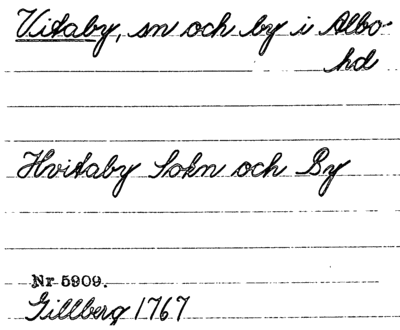 Vitaby, sn och by i Albo-
hd
Hvitaby Sokn och By
Nr 5909.
Gillberg 1767